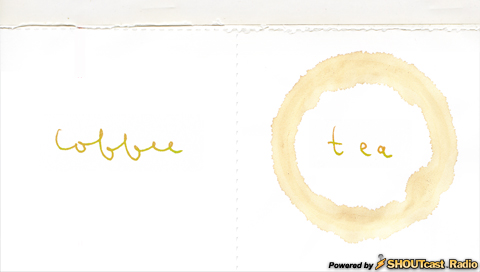 coffee
tea
Powered by SHOUTcast Radio